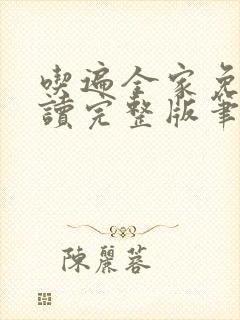 喫遍全家免
讀完整版筆
陳麗蓉